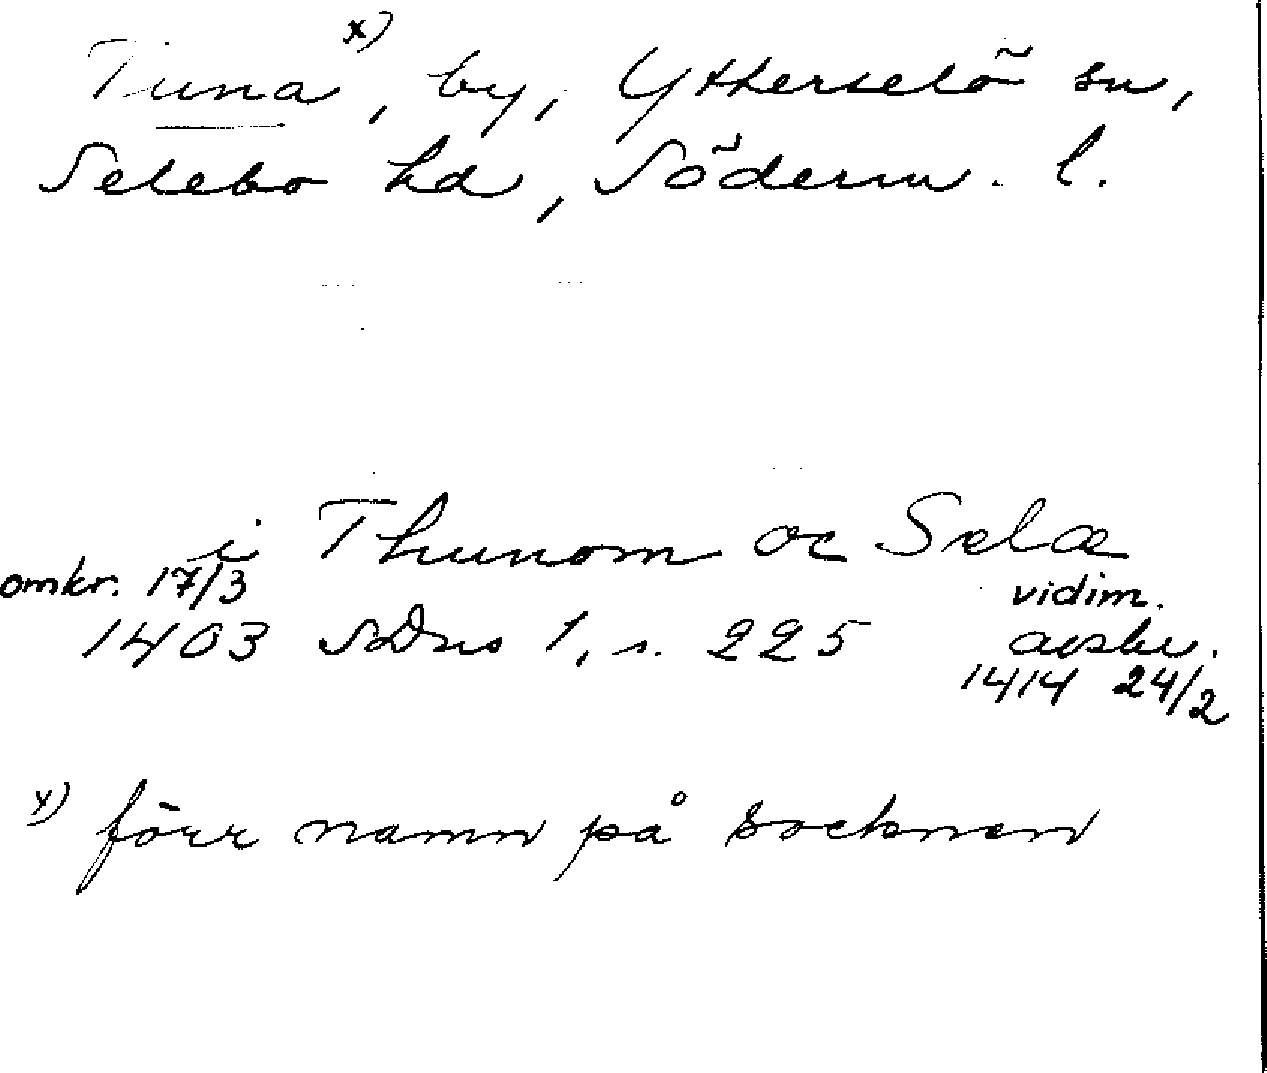 Tuna x), by, Ytterselö sn,
Selebo hd, Söderm. l.
i Thunom oc Selæ
omkr. 17/3 vidim.
1403 SDns 1, s. 225 avskr.
1414 24/2
x) förr namn på socknen